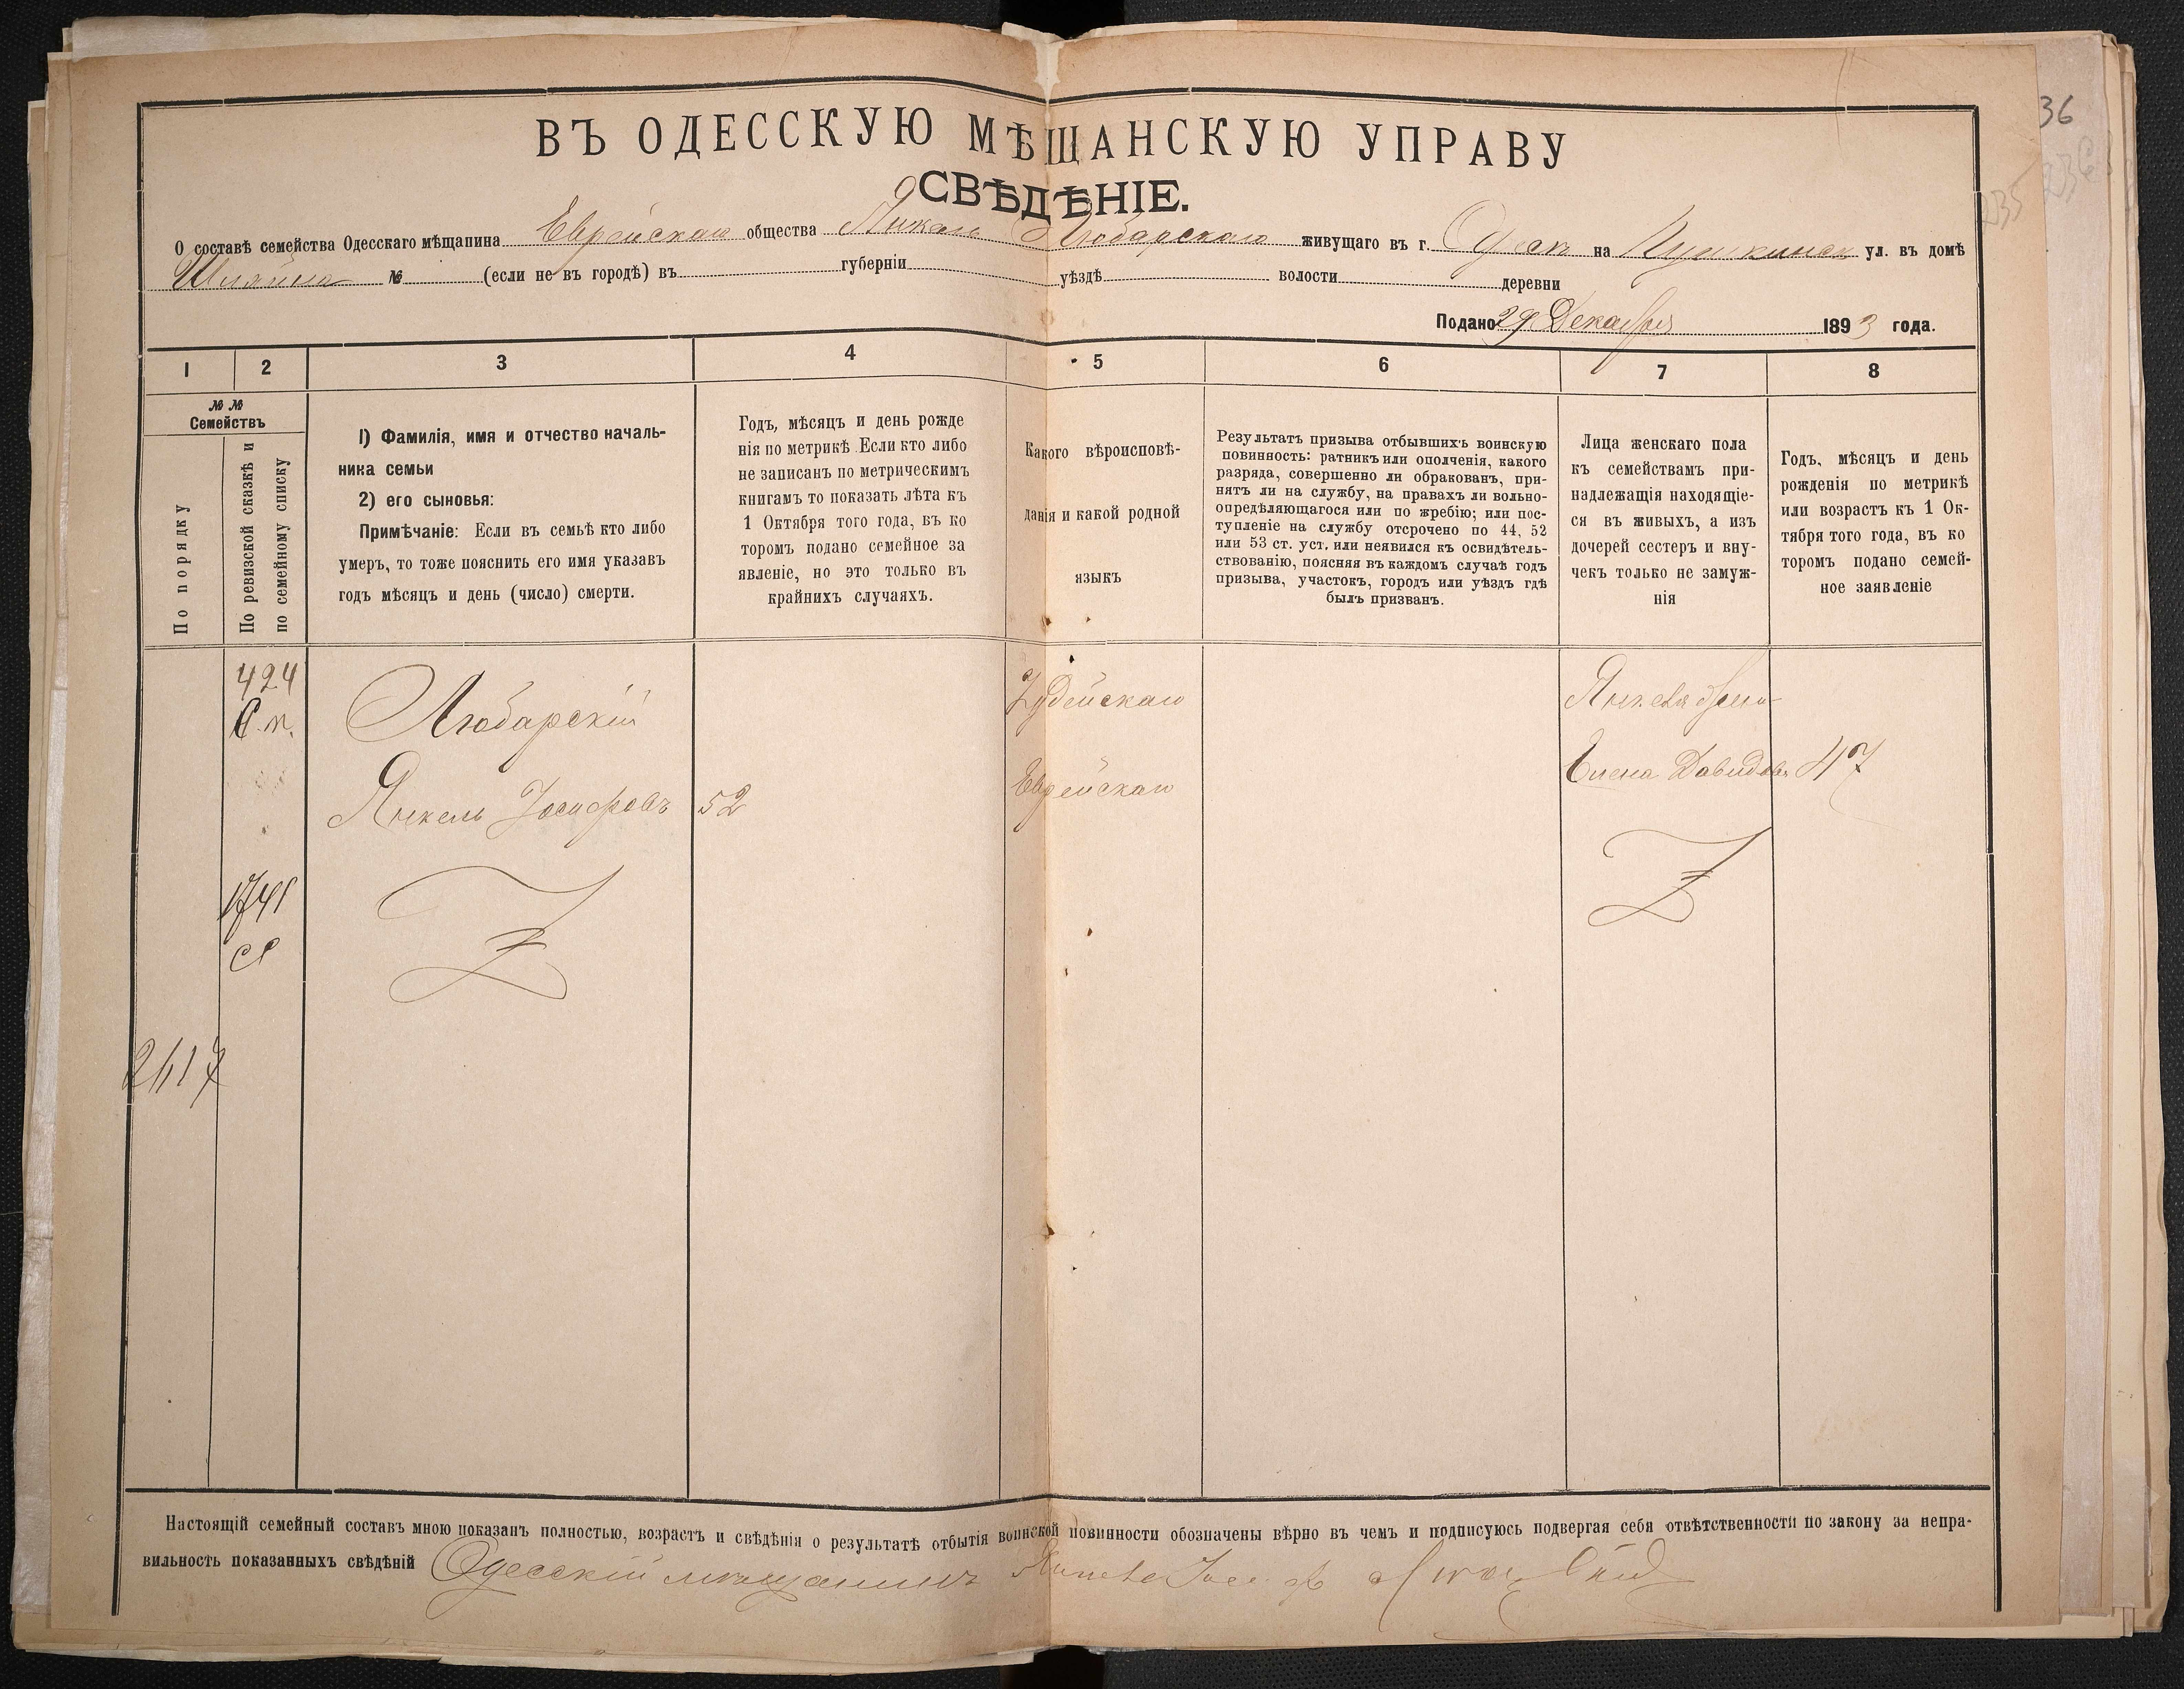 36
236
235
ВЪ ОДЕССКУЮ МѢЩАНСКУЮ УПРАВУ
СВѢДѢНІЕ.
О составѣ семейства Одесскаго мѣщанина Еврейскаго общества Янкель Любарскаго живущаго въ г. Одессѣ на Пушкинск ул. въ домѣ
№ (если не въ городѣ) въ губерніи уѣздѣ волости деревни
Подано 29 Декабря 1893 года.
1 2 3 4 5 6 7 8
№ №
Семействъ
По порядку
По ревизской сказкѣ и
по семейному списку
1) Фамилія, имя и отчество началь-
ника семьи
2) его сыновья:
Примѣчаніе: Если въ семьѣ кто либо
умеръ, то тоже пояснить его имя указавъ
годъ мѣсяцъ и день (число) смерти.
Годъ, мѣсяцъ и день рожде
нія по метрикѣ Если кто либо
не записанъ по метрическимъ
книгамъ то показать лѣта къ
1 Октября того года, въ ко
торомъ подано семейное за
явленіе, но это только въ
крайнихъ случаяхъ.
Какого вѣроисповѣ-
данія и какой родной
языкъ
Результатъ призыва отбывшихъ воинскую
повинность: ратникъ или ополченія, какого
разряда, совершенно ли обракованъ, при-
нятъ ли на службу, на правахъ ли вольно-
опредѣляющагося или по жребію; или пос-
тупленіе на службу отсрочено по 44, 52
или 53 ст. уст. или неявился къ освидѣтель-
ствованію, поясняя въ каждомъ случаѣ годъ
призыва, участокъ, городъ или уѣздъ гдѣ
былъ призванъ.
Лица женскаго пола
къ семействамъ при-
надлежащія находящіе-
ся въ живыхъ, а изъ
дочерей сестеръ и вну-
чекъ только не замуж-
нія
Годъ, мѣсяцъ и день
рожденія по метрикѣ
или возрастъ къ 1 Ок-
тября того года, въ ко
торомъ подано семей-
ное заявленіе
424
Любарскій
Іудейскаго
Янкеля жена
Янкель Іосифовъ 52
Еврейскаго
Елена Давидов 47
1741
2617
Настоящій семейный составъ мною показанъ полностью, возрастъ и свѣдѣнія о результатѣ отбытія воинской повинности обозначены вѣрно въ чемъ и подписуюсь подвергая себя отвѣтственности по закону за непра-
вильность показанныхъ свѣдѣній Одесскій мѣщанинъ